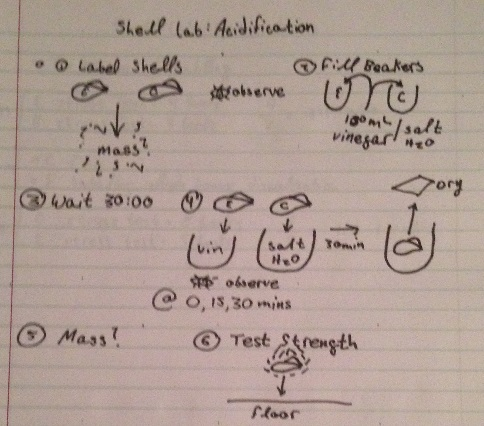 Shell Lab: Acidification
① Label Shells
E C observe
mass?
② Fill Beakers
E C
100mL
vinegar/salt H2O
③ Wait 30:00
④ E C
vin
salt H2O
30min
dry
observe
@ 0, 15, 30 mins
⑤ Mass?
⑥ Test Strength
floor